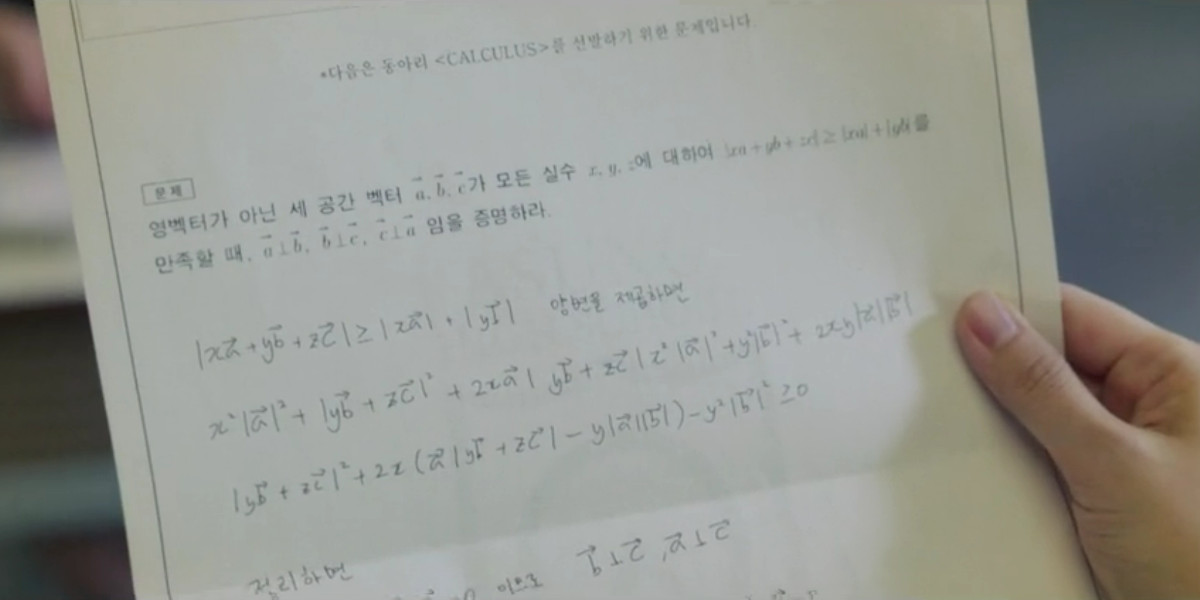 *다음은 동아리 <CALCULUS>를 선발하기 위한 문제입니다.
문제
영벡터가 아닌 세 공간 벡터 a⃗, b⃗, c⃗가 모든 실수 x, y, z에 대하여 |xa + yb + zc| ≥ |xa| + |yb|를
만족할 때, a⃗⊥b⃗, b⃗⊥c⃗, c⃗⊥a⃗ 임을 증명하라.
|xa⃗ + yb⃗ + zc⃗| ≥ |xa⃗| + |yb⃗| 양변을 제곱하면
x²|a⃗|² + |yb⃗ + zc⃗|² + 2xa⃗| yb⃗ + zc⃗ | x²|a⃗|² + y²|b⃗|² + 2xy|a⃗||b⃗|
|yb⃗ + zc⃗|² + 2x(a⃗|yb⃗ + zc⃗| - y|a⃗||b⃗|) - y²|b⃗|² ≥ 0
정리하면
이므로 b⃗⊥c⃗, a⃗⊥c⃗